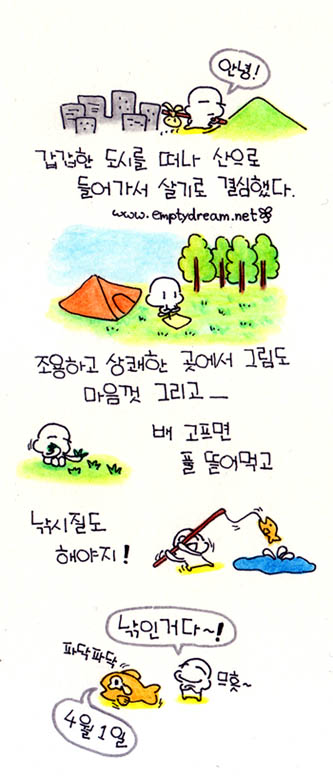 안녕!
갑갑한 도시를 떠나 산으로
들어가서 살기로 결심했다.
www.emptydream.net
조용하고 상쾌한 곳에서 그림도
마음껏 그리고__
배 고프면
풀 뜯어먹고
낚시질도
해야지!
낚인거다~!
파닥파닥
므흣~
4월 1일